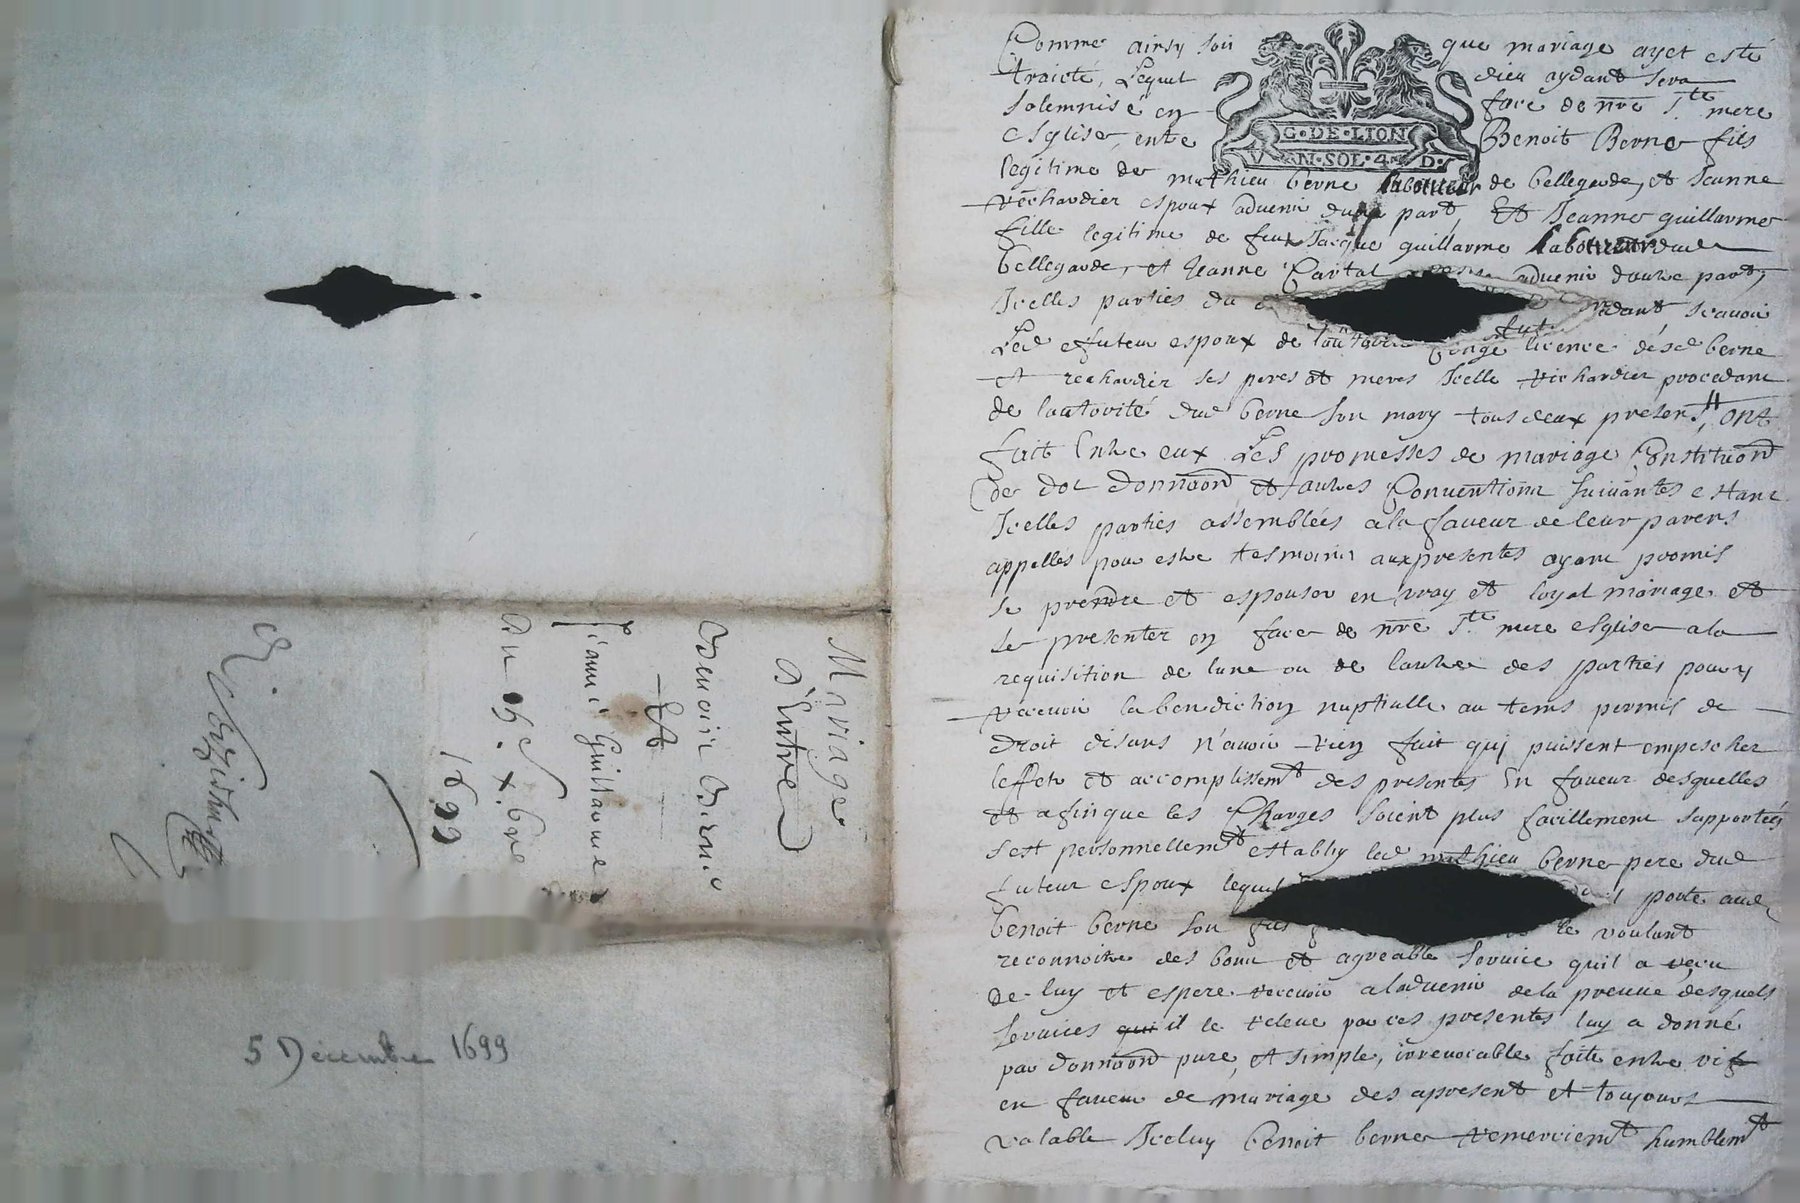 Mariage
D'Entre
Benoit Berne
Et
Jeanne Guillaume
Du 5e xbre
1699
5 Décembre 1699
Comme ainsy soit que mariage ayet esté
traicté, Lequel dieu aydant sera
solemnisé en face de nre Ste mere
esglise, entre Benoit Berne fils
G·DE·LION
V N·SOL·4 D·
legitime de mathieu berne laboureur de bellegarde, et Jeanne
espoux advenir dune part, Et Jeanne guillarme
fille legitime de feu Jacque guillarme laboureur dud
bellegarde, et Jeanne advenir dautre part,
Icelles parties du scavoir
Led futeur espoux de licence desd berne
et richardier ses peres et meres Icelle richardier procedant
de lautorité dud berne son mary tous deux presens, ont
fait Entre eux Les promesses de mariage Constituõn
de dot donnaõn et autres Conventions suivantes estant
Icelles parties assemblées a la faveur de leur parens
appelles pour estre tesmoins aux presentes ayant promis
se prendre et espouser en vray et loyal mariage et
se presenter en face de nre Ste mere esglise a la
requisition de lune ou de lautre des parties pour y
recevoir la benediction nuptialle au tems permis de
droit disans n'avoir rien fait qui puissent empescher
leffet et accomplissemt des presentes En faveur desquelles
et afin que les Charges soient plus facillement supportés
sest personnellemt estably led mathieu berne pere dud
futeur espoux lequel porte aud
benoit berne son fils le voulant
reconnoitre des bons et agreable service quil a recu
de luy et espere recevoir a ladvenir de la preuve desquels
services qui il le releve par ces presentes luy a donné
par donnaõn pure, et simple, irrevocable faite entre vif
en faveur de mariage des apresent et toujours
valable Iceluy benoit berne remerciemt humblemt